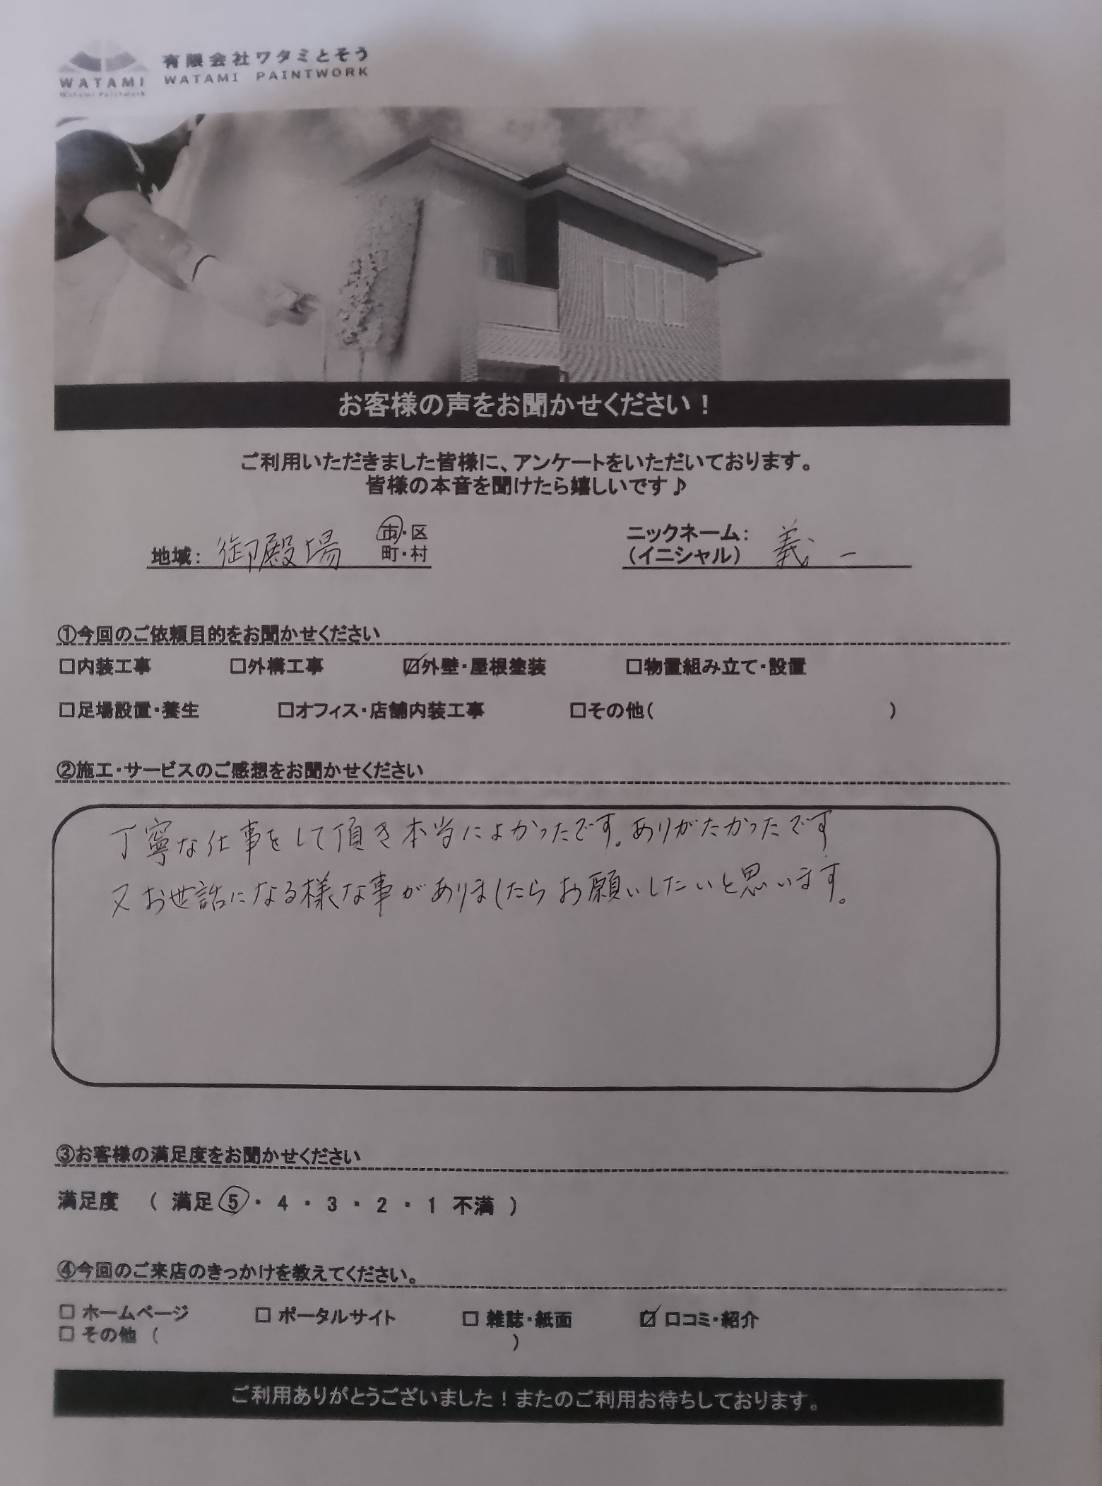 有限会社ワタミとそう
WATAMI PAINTWORK
WATAMI
Watami Paintwork
お客様の声をお聞かせください！
ご利用いただきました皆様に、アンケートをいただいております。
皆様の本音を聞けたら嬉しいです♪
地域：御殿場 市・区
町・村
ニックネーム：
（イニシャル） 義一
①今回のご依頼目的をお聞かせください
□内装工事 □外構工事 ☑外壁・屋根塗装 □物置組み立て・設置
□足場設置・養生 □オフィス・店舗内装工事 □その他（ ）
②施工・サービスのご感想をお聞かせください
丁寧な仕事をして頂き本当によかったです。ありがたかったです
又お世話になる様な事がありましたらお願いしたいと思います。
③お客様の満足度をお聞かせください
満足度 （ 満足 5 ・ 4 ・ 3 ・ 2 ・ 1 不満 ）
④今回のご来店のきっかけを教えてください。
□ ホームページ □ ポータルサイト □ 雑誌・紙面 ☑ 口コミ・紹介
□ その他 （ ）
ご利用ありがとうございました！またのご利用お待ちしております。